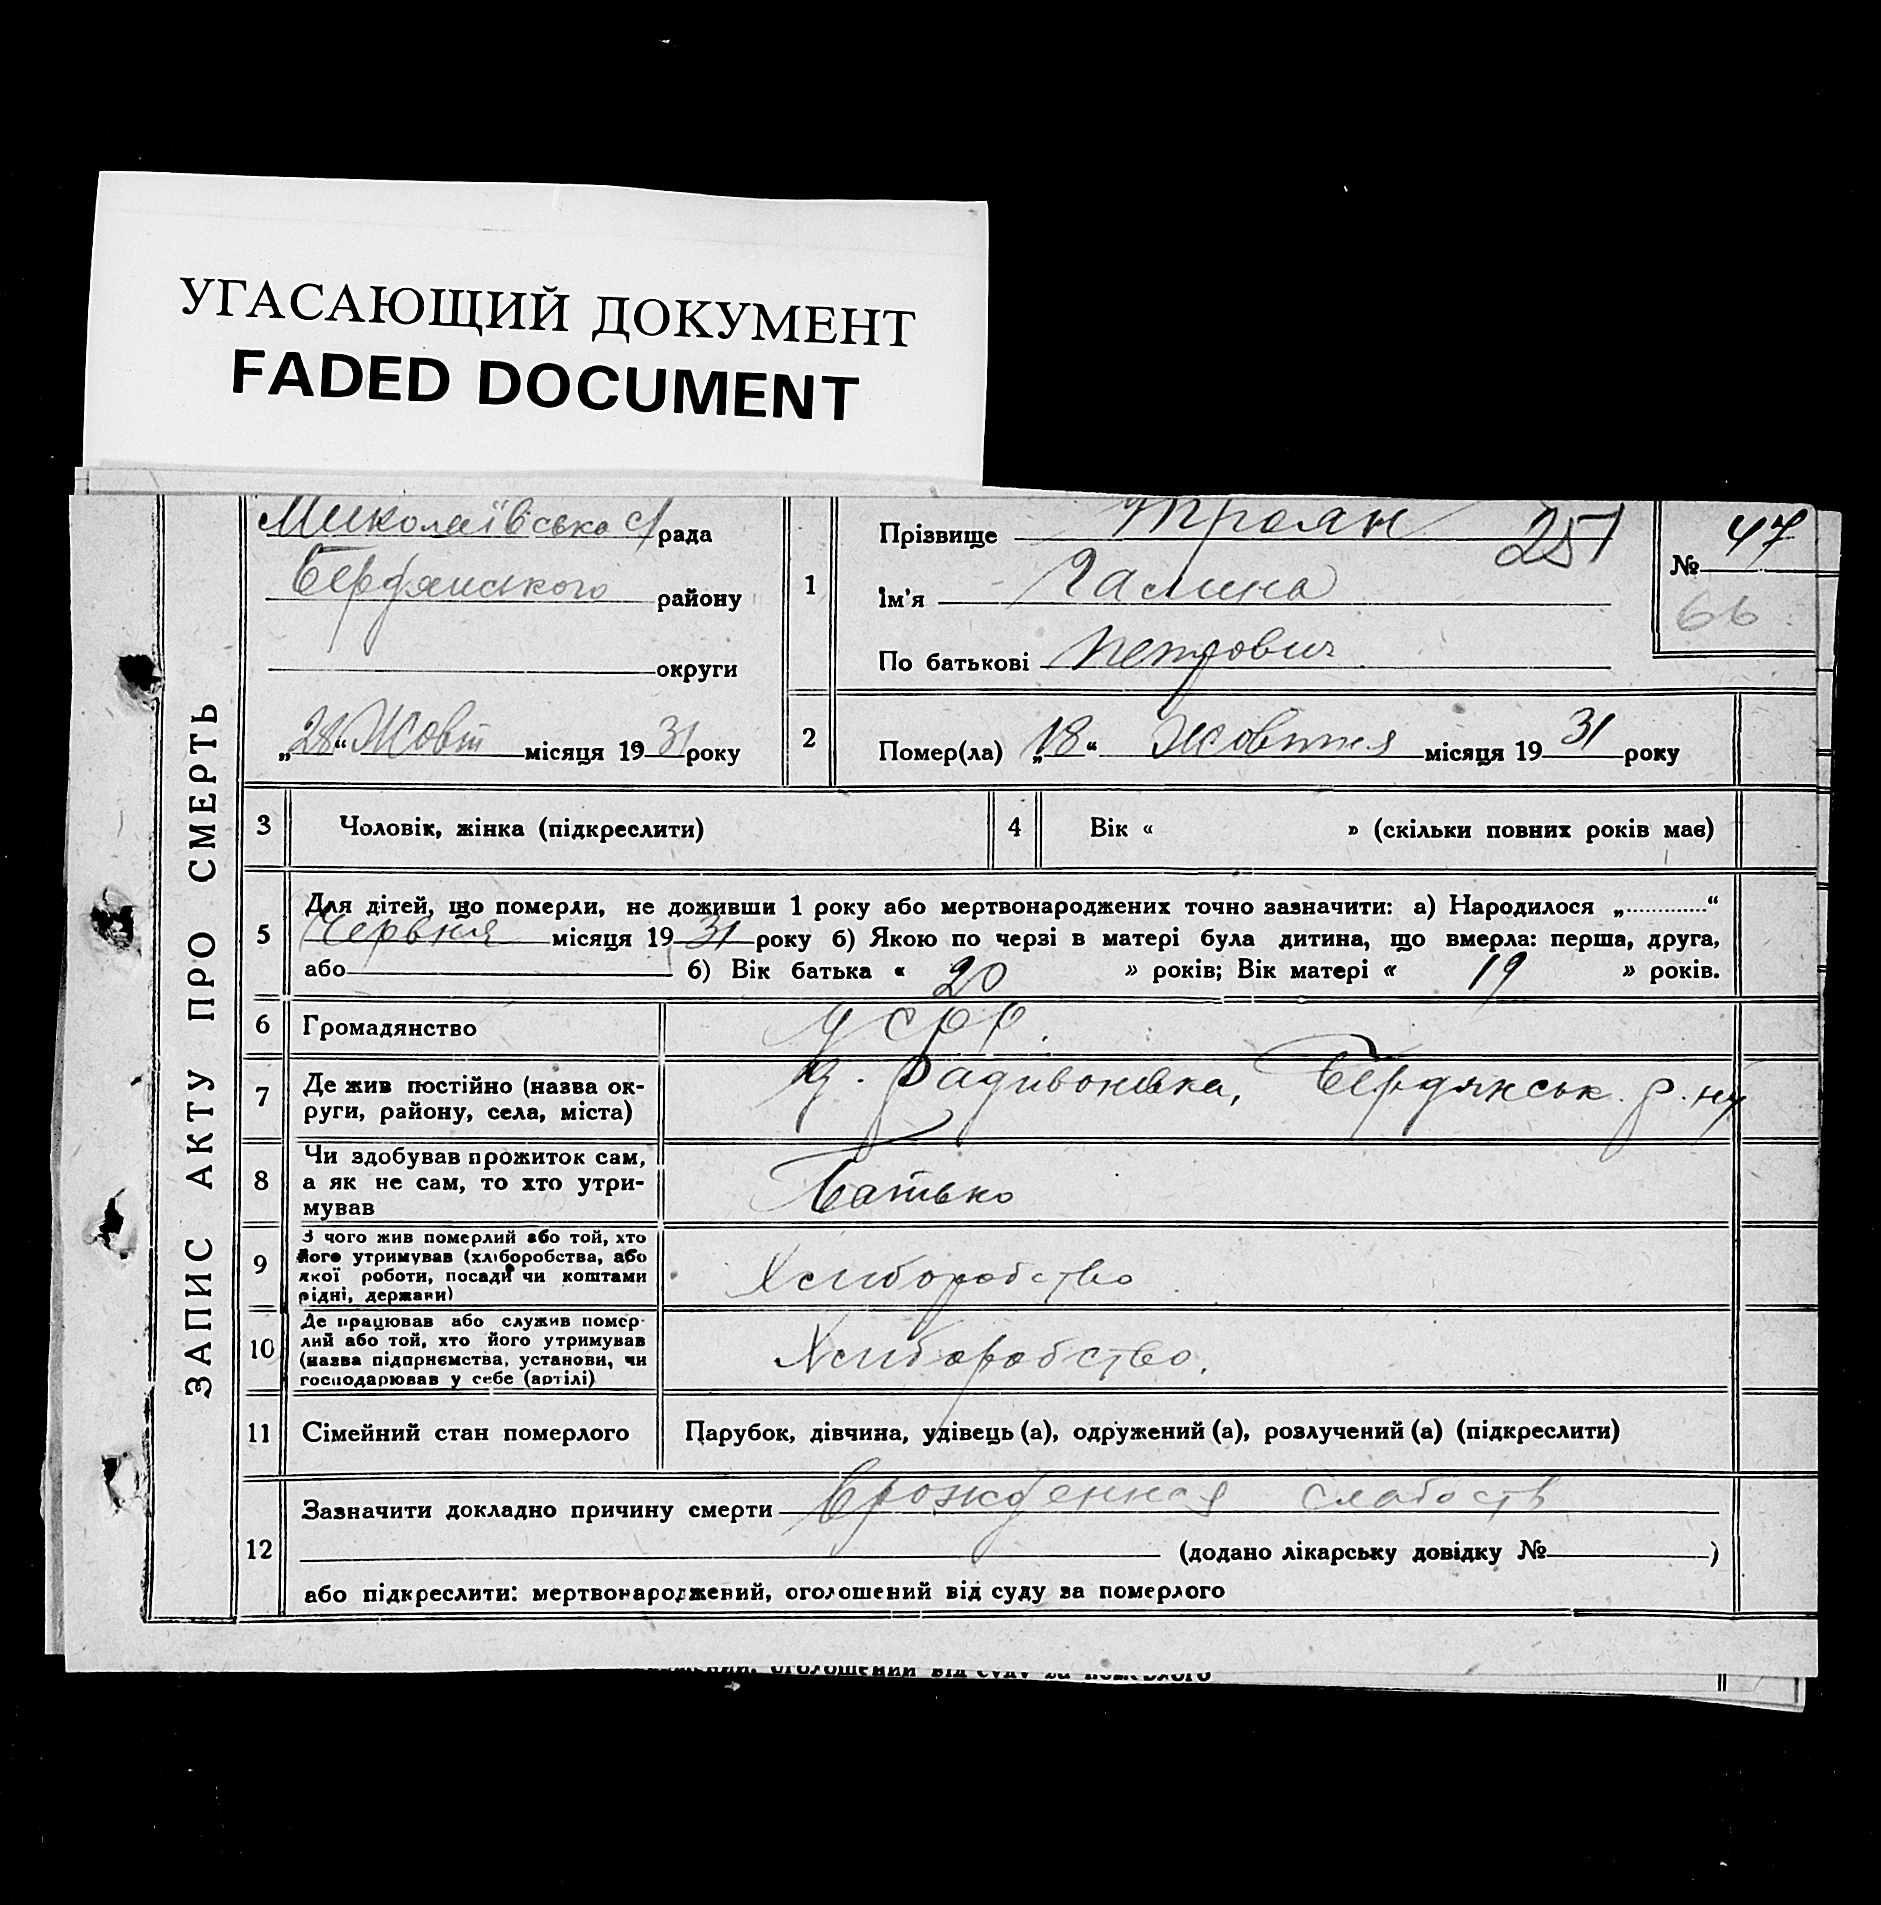 УГАСАЮЩИЙ ДОКУМЕНТ
FADED DOCUMENT
ЗАПИС АКТУ ПРО СМЕРТЬ
Миколаївська с/рада
Бердянського району
округи
„28“ Жовт місяця 1931 року
1
Прізвище Троян 251
Ім'я Галина
По батькові Петрович
№ 47
66
2 Помер(ла) „18“ Жовтня місяця 1931 року
3 Чоловік, жінка (підкреслити)
4 Вік « » (скільки повних років має)
5 Для дітей, що померли, не доживши 1 року або мертвонароджених точно зазначити: а) Народилося „............“
Червня місяця 1931 року б) Якою по черзі в матері була дитина, що вмерла: перша, друга,
або б) Вік батька « 20 » років; Вік матері « 19 » років.
6 Громадянство УСРР.
7 Де жив постійно (назва ок-
руги, району, села, міста)
Радивонівка, Бердянськ. р. ну
8 Чи здобував прожиток сам,
а як не сам, то хто утри-
мував
Батько
9 З чого жив померлий або той, хто
його утримував (хліборобства, або
якої роботи, посади чи коштами
рідні, держави)
Хлиборобство
10 Де працював або служив помер-
лий або той, хто його утримував
(назва підприємства, установи, чи
господарював у себе (артілі)
Хлиборобство.
11 Сімейний стан померлого Парубок, дівчина, удівець (а), одружений (а), розлучений (а) (підкреслити)
12 Зазначити докладно причину смерти Врожденная слабость
(додано лікарську довідку № )
або підкреслити: мертвонароджений, оголошений від суду за померлого
оголошений від суду за померлого